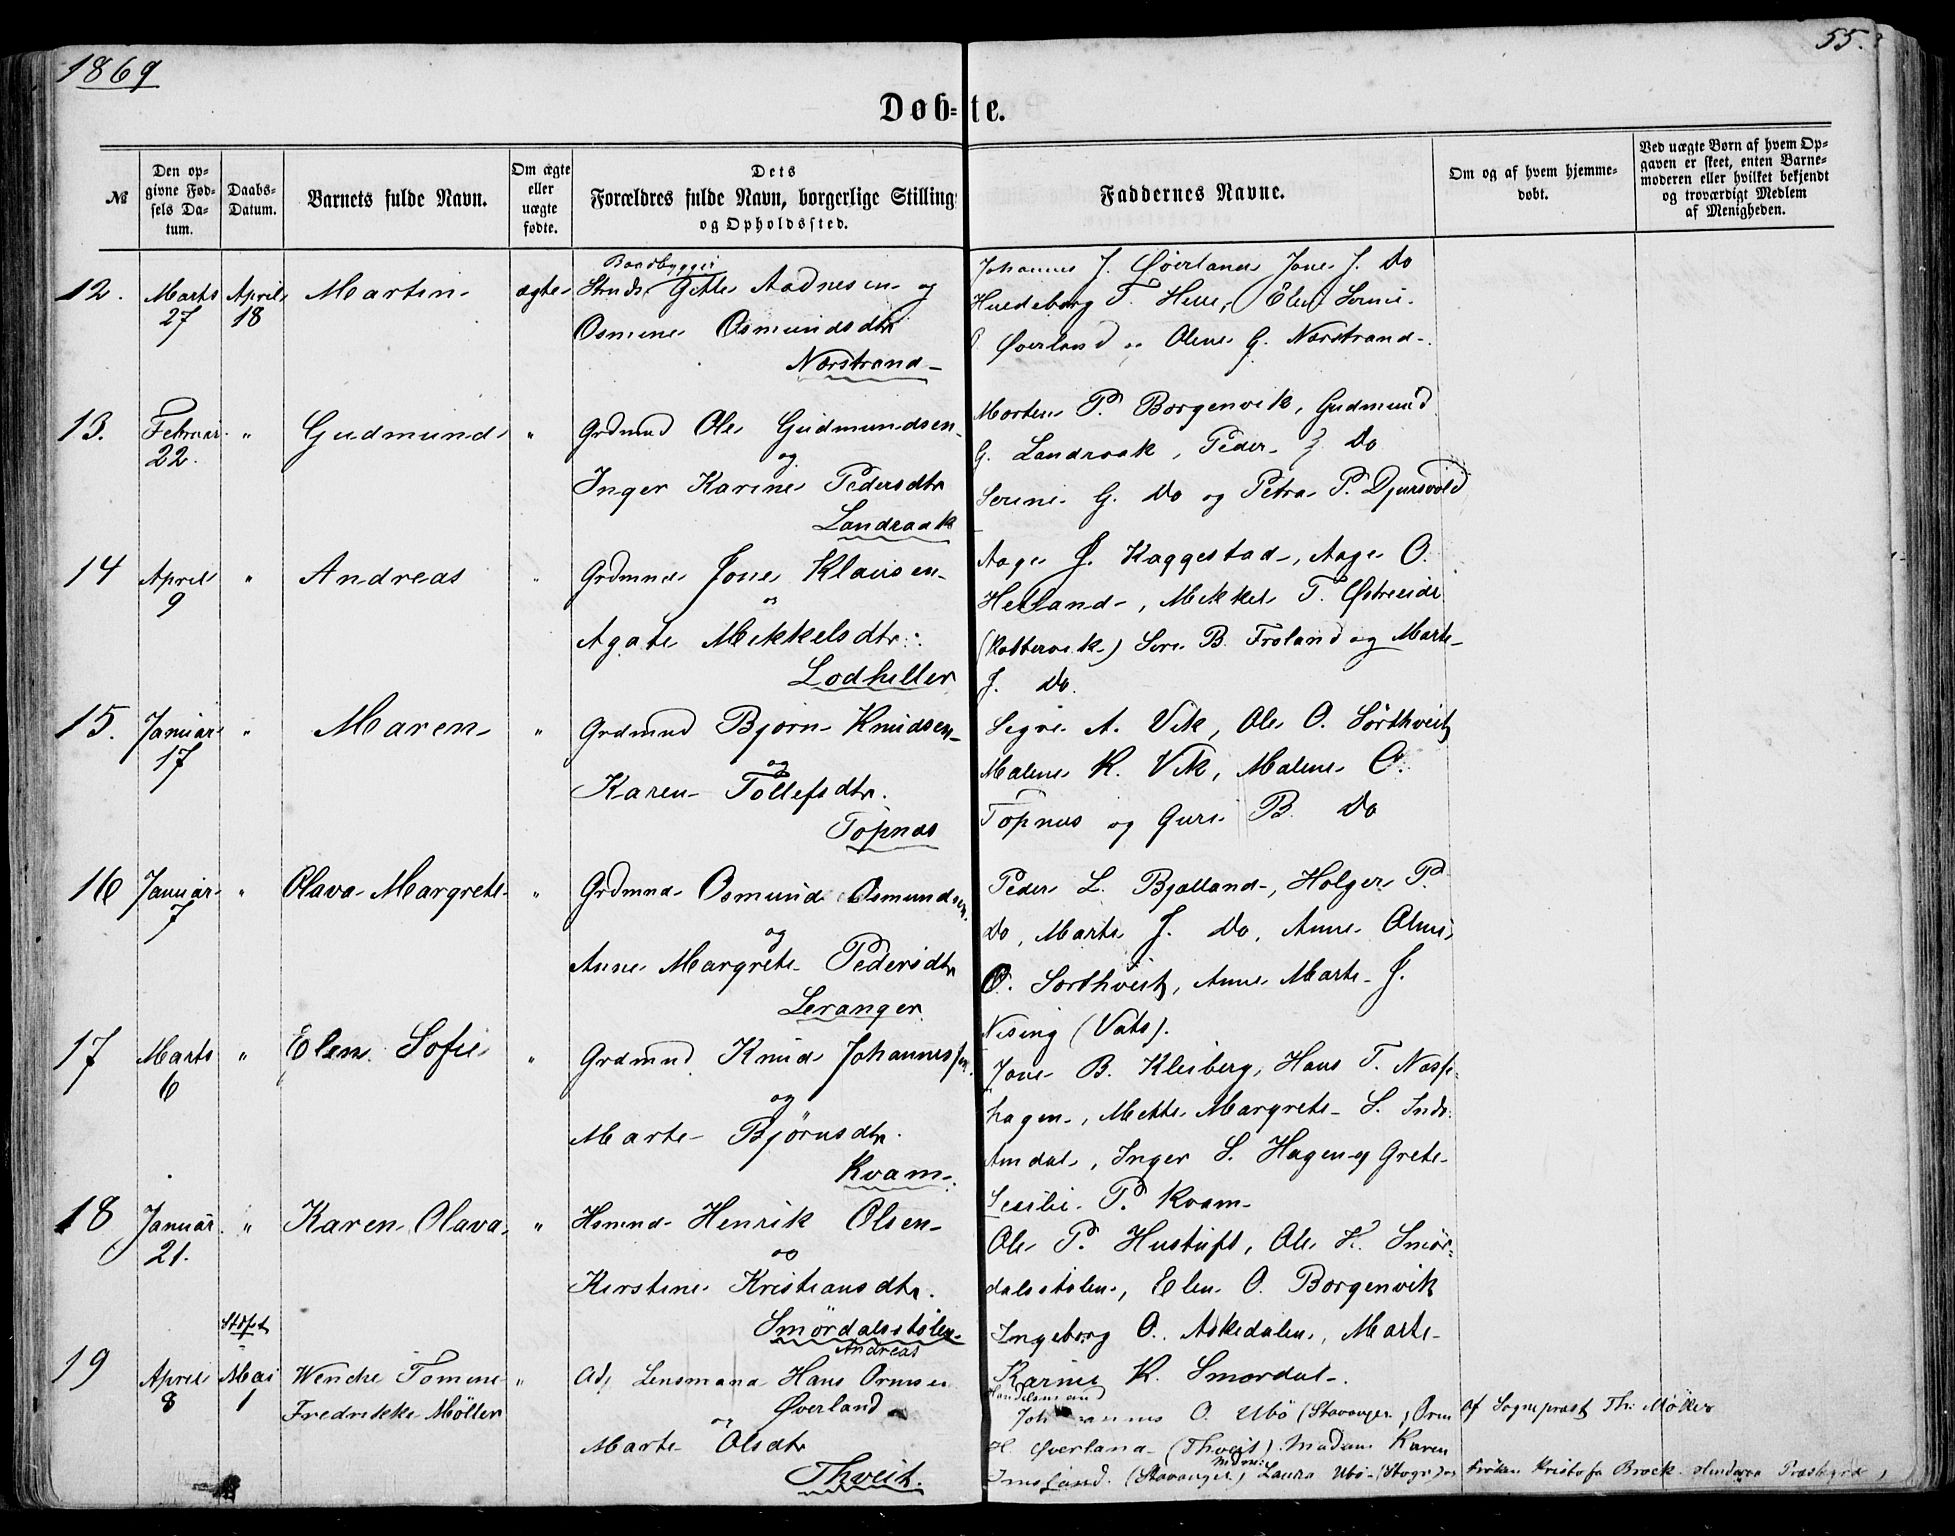 1869
55.
Døb=te.
№
Den op-
givne Fød-
sels Da-
tum.
Daabs-
Datum.
Barnets fulde Navn.
Om ægte
eller
uægte
fødte.
Dets
Forældres fulde Navn, borgerlige Stilling
og Opholdssted.
Faddernes Navne.
Om og af hvem hjemme-
døbt.
Ved uægte Børn af hvem Op-
gaven er skeet, enten Barne-
moderen eller hvilket bekjendt
og troværdigt Medlem
af Menigheden.
12. Marts 27 April 18 Martin ægte
Baadbygger
Gitle Aadnesen og
Osmine Osmundsdtr
Norstrand
Johannes J. Øverland Jone J. Do
T. Helle, Elen Serine
O. Øverland og Olene G. Norstrand
13. Februar 22. " Gudmund "
Grdmnd Ole Gudmundsen
og
Inger Karine Pedersdtr
Landraak
Morten P. Borgenvik, Gudmund
G. Landraak, Peder G. Do
Serine G. Do og Petra P. Djursvold
14 April 9 " Andreas "
Grdmnd Jone Klausen
og
Agate Mikkelsdtr.
Lodheller
Aage J. Kaggestad, Aage O.
Helland, Mikkel T. Østreside
Siri B. Froland og Marte
J. Do.
15. Januar 17 " Maren "
Grdmnd Bjørn Knudsen
og
Karen Tollefsdtr.
Topnes
A. Vik, Ole O. Sørthveit
Malene K. Vik, Malene O.
Topnes og Guri B. Do
16 Januar 7 " Olava Margrete "
Grdmnd Osmund Osmundsen.
og
Anne Margrete Pedersdtr
Leranger
Peder L. Bjølland, Holger P.
Do, Marte J. Do, Anne Oline
O. Sørthveit, Anne Marte J.
Nising (Vats).
17 Marts 6 " Elen Sofie "
Grdmnd Knud Johannessen.
og
Marte Bjørnsdtr.
Kvam
Jone B. Kleiberg, Hans T. Næsse-
hagen, Mette Margrete S. Indr.
Amdal, Inger S. Hagen og Grete
Sesilie P. Kvam
18 Januar 21. " Karen Olava "
Hsmnd Henrik Olsen
og
Kirstine Kristiansdtr.
Smørdalsstølen
Ole P. Hustuft, Ole K. Smør-
dalsstølen, Elen O. Borgenvik
Ingeborg O. Askedalen, Marte
Karine K. Smørdal
19 April 8 Mai 1 Wenche Tomine
Fredrikke Møller "
Andreas
Lensmand Hans Ormsen
Øverland
og
Marte Olsdtr
Thveit.
Handelsmand
Johannes O. Ubø (Stavanger), Orm
H. Øverland (Thveit) Madam Karen
Imsland (Stavanger) Laura Ubø
Frøken Kristofa Brock
Af Sogneprest Th: Møller